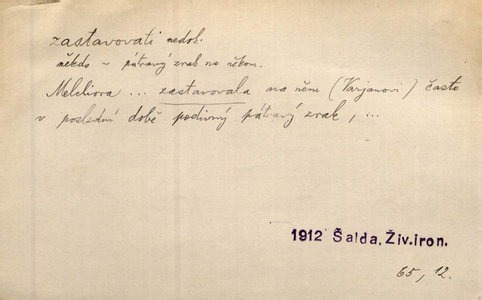 zastavovati nedok.
někdo ~ pátravý zrak na někom.
Melchiora ... zastavovala na něm (Varjanovi) často
v poslední době podivný pátravý zrak, ...
1912 Šalda, Živ.iron.
65, 12.